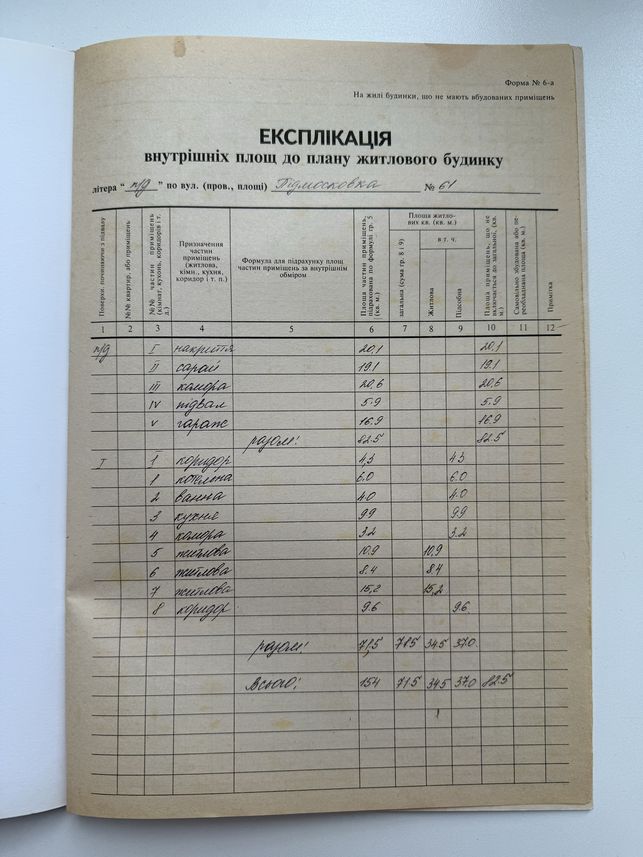 Форма № 6-а
На жилі будинки, що не мають вбудованих приміщень
ЕКСПЛІКАЦІЯ
внутрішніх площ до плану житлового будинку
літера " п/д " по вул. (пров., площі) Підмосковка № 61
Поверхи, починаючи з підвалу
№№ квартир, або приміщень
№№ частин приміщень (кімнат, кухонь, коридорів і т. д.)
Призначення частин приміщень (житлова, кімн., кухня, коридор і т. п.)
Формула для підрахунку площ частин приміщень за внутрішнім обміром
Площа частин приміщень, підрахована по формулі гр. 5 (кв. м.)
Площа житлових кв. (кв. м.)
загальна (сума гр. 8 і 9)
в т. ч.
Житлова
Підсобна
Площа приміщень, що не включається до загальної, (кв. м.)
Самовільно збудована або переобладнана площа (кв. м.)
Примітка
1 2 3 4 5 6 7 8 9 10 11 12
п/д I накриття 20,1 20,1
II сарай 19.1 19.1
III комора 20,6 20,6
IV підвал 5.9 5.9
V гараж 16.9 16.9
разом: 82.5 82.5
I 1 коридор 4,3 4.3
1 котельна 6.0 6.0
2 ванна 4.0 4.0
3 кухня 9.9 9.9
4 комора 3.2 3.2
5 житлова 10.9 10.9
6 житлова 8.4 8.4
7 житлова 15,2 15,2
8 коридор 9.6 9.6
разом: 71.5 71.5 34.5 37.0
Всього: 154 71.5 34.5 37.0 82.5